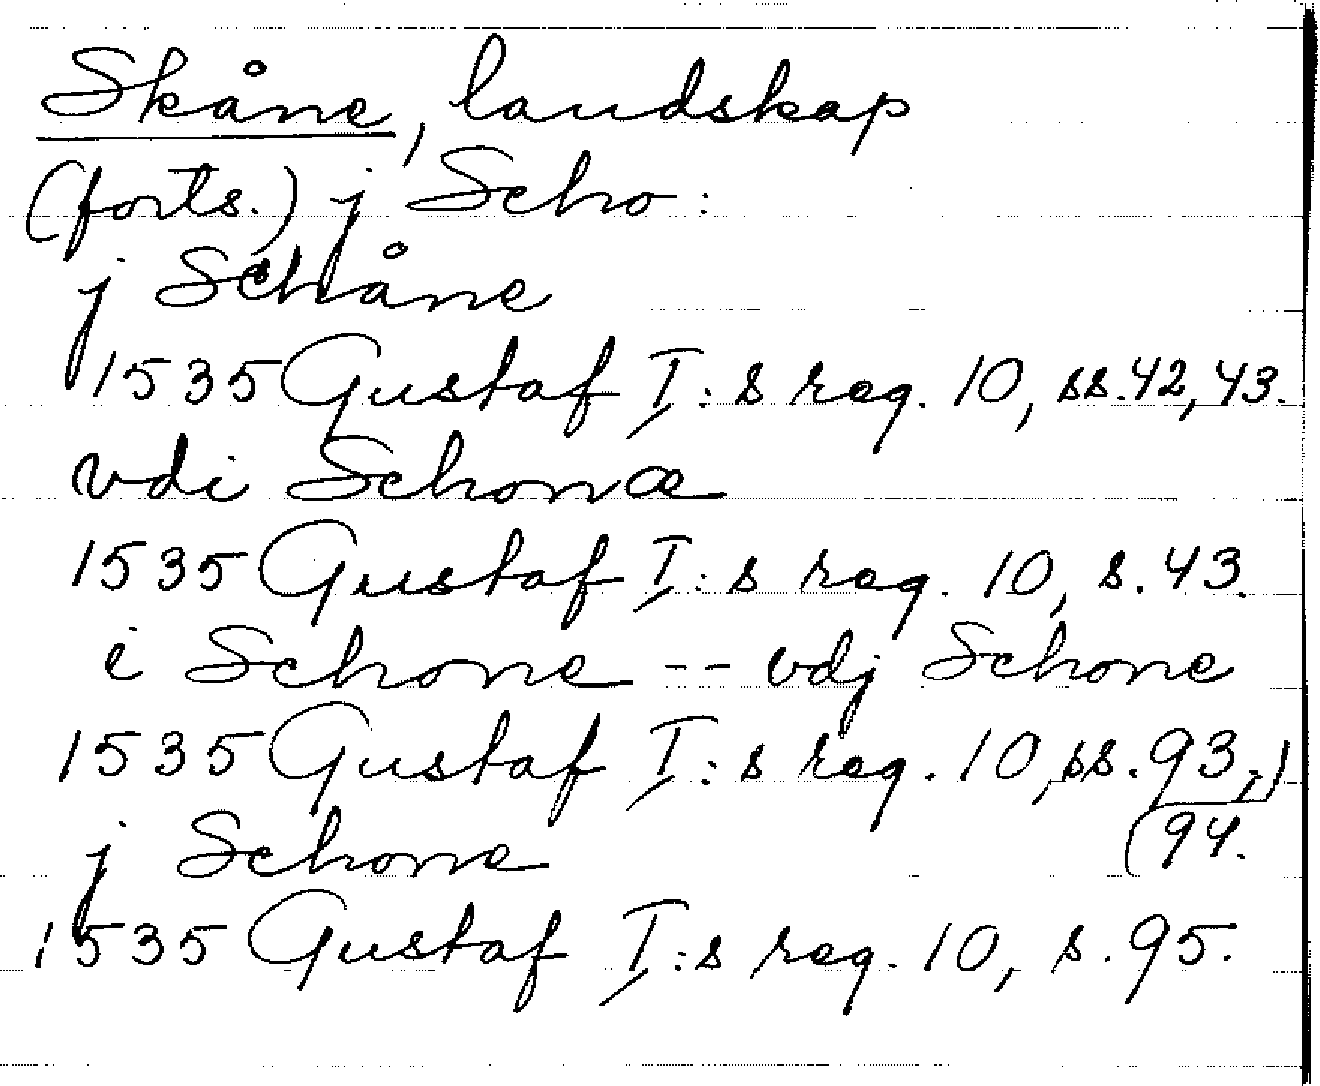 Skåne, landskap
(forts.) j Scho:
j Schåne
1535 Gustaf I:s reg. 10, ss. 42, 43.
vdi Schonæ
1535 Gustaf I:s reg. 10, s. 43.
i Schone -- vdj Schone
1535 Gustaf I:s reg. 10, ss. 93,
94.
j Schone
1535 Gustaf I:s reg. 10, s. 95.